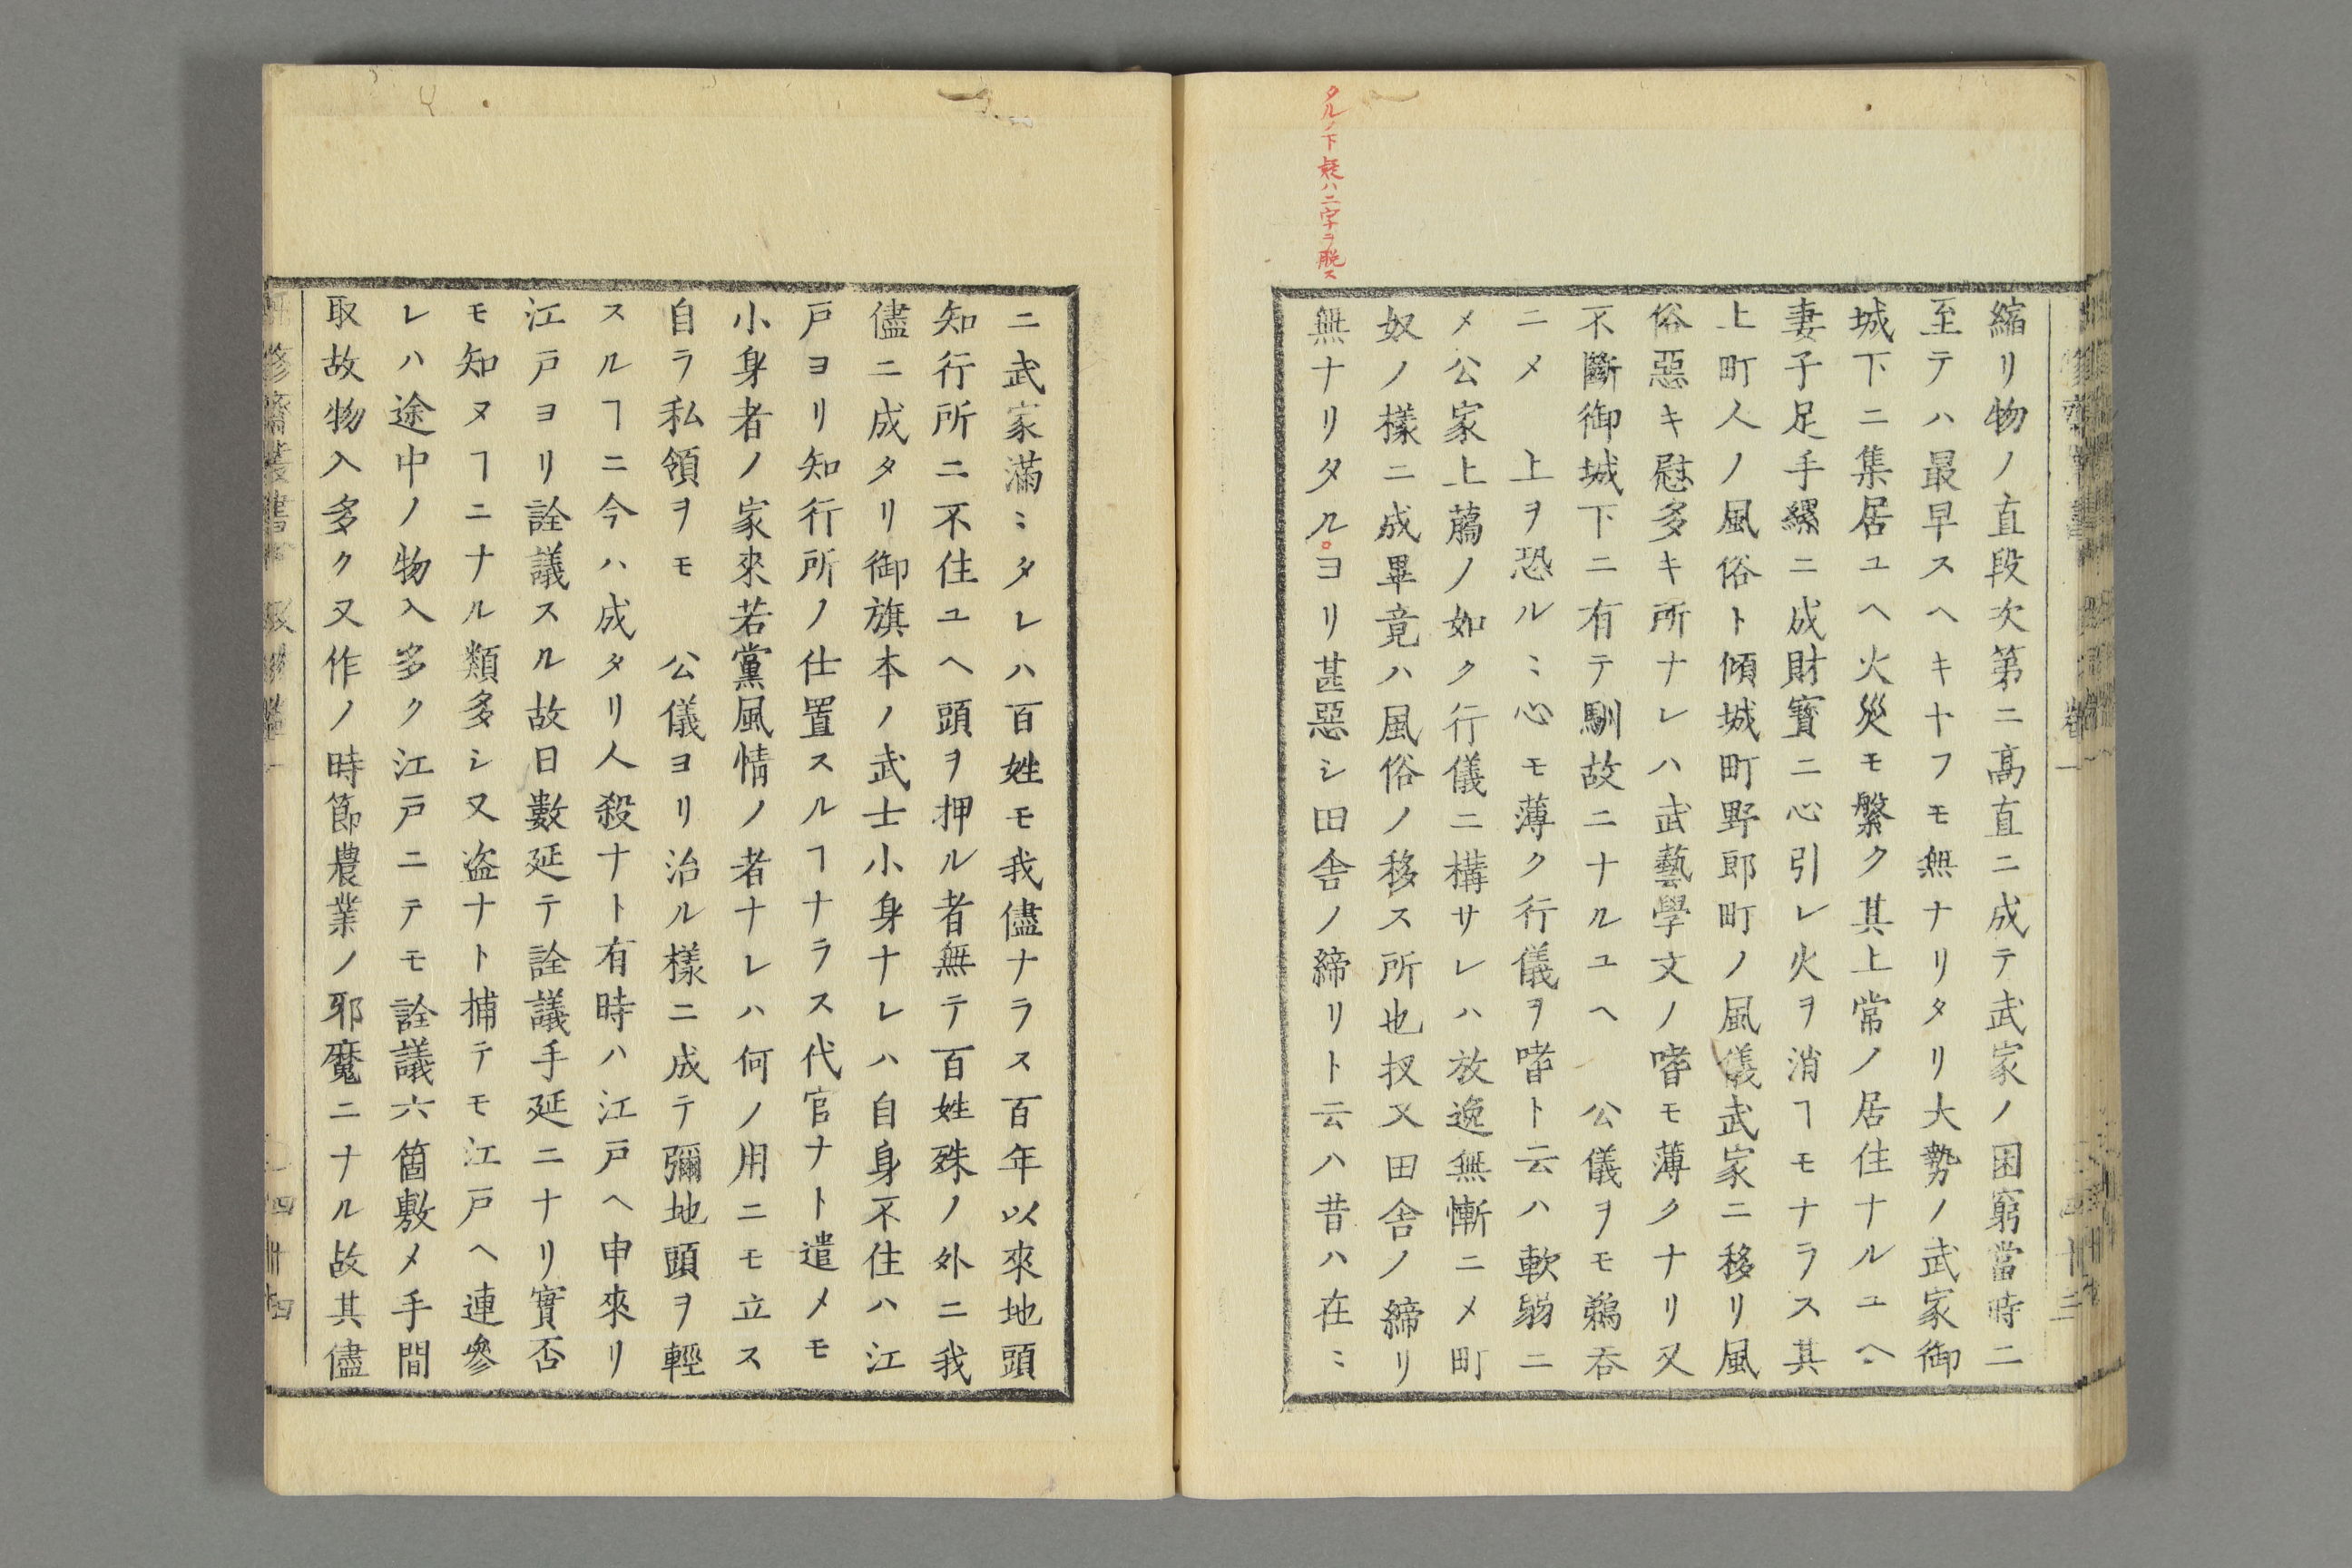 タルノ下疑ハニ字ヲ脱ス
縮リ物ノ直段次第ニ高直ニ成テ武家ノ困窮當時ニ
至テハ最早スヘキヤフモ無ナリタリ大勢ノ武家御
城下ニ集居ユヘ火災モ繁ク其上常ノ居住ナルユヘ
妻子足手纒ニ成財寳ニ心引レ火ヲ消ヿモナラス其
上町人ノ風俗ト傾城町野郎町ノ風儀武家ニ移リ風
俗惡キ慰多キ所ナレハ武藝學文ノ嗜モ薄クナリ又
不斷御城下ニ有テ馴故ニナルユヘ 公儀ヲモ鵜呑
ニメ 上ヲ恐ルヽ心モ薄ク行儀ヲ嗜ト云ハ軟弱ニ
メ公家上﨟ノ如ク行儀ニ構サレハ放逸無慚ニメ町
奴ノ樣ニ成畢竟ハ風俗ノ移ス所也扨又田舎ノ締リ
無ナリタル。ヨリ甚惡シ田舎ノ締リト云ハ昔ハ在ヽ
ニ武家滿ヽタレハ百姓モ我儘ナラス百年以來地頭
知行所ニ不住ユヘ頭ヲ押ル者無テ百姓殊ノ外ニ我
儘ニ成タリ御旗本ノ武士小身ナレハ自身不住ハ江
戸ヨリ知行所ノ仕置スルヿナラス代官ナト遣メモ
小身者ノ家來若黨風情ノ者ナレハ何ノ用ニモ立ス
自ラ私領ヲモ 公儀ヨリ治ル樣ニ成テ彌地頭ヲ輕
スルヿニ今ハ成タリ人殺ナト有時ハ江戸ヘ申來リ
江戸ヨリ詮議スル故日數延テ詮議手延ニナリ實否
モ知ヌヿニナル類多シ又盗ナト捕テモ江戸ヘ連參
レハ途中ノ物入多ク江戸ニテモ詮議六箇敷メ手間
取故物入多ク又作ノ時節農業ノ邪魔ニナル故其儘